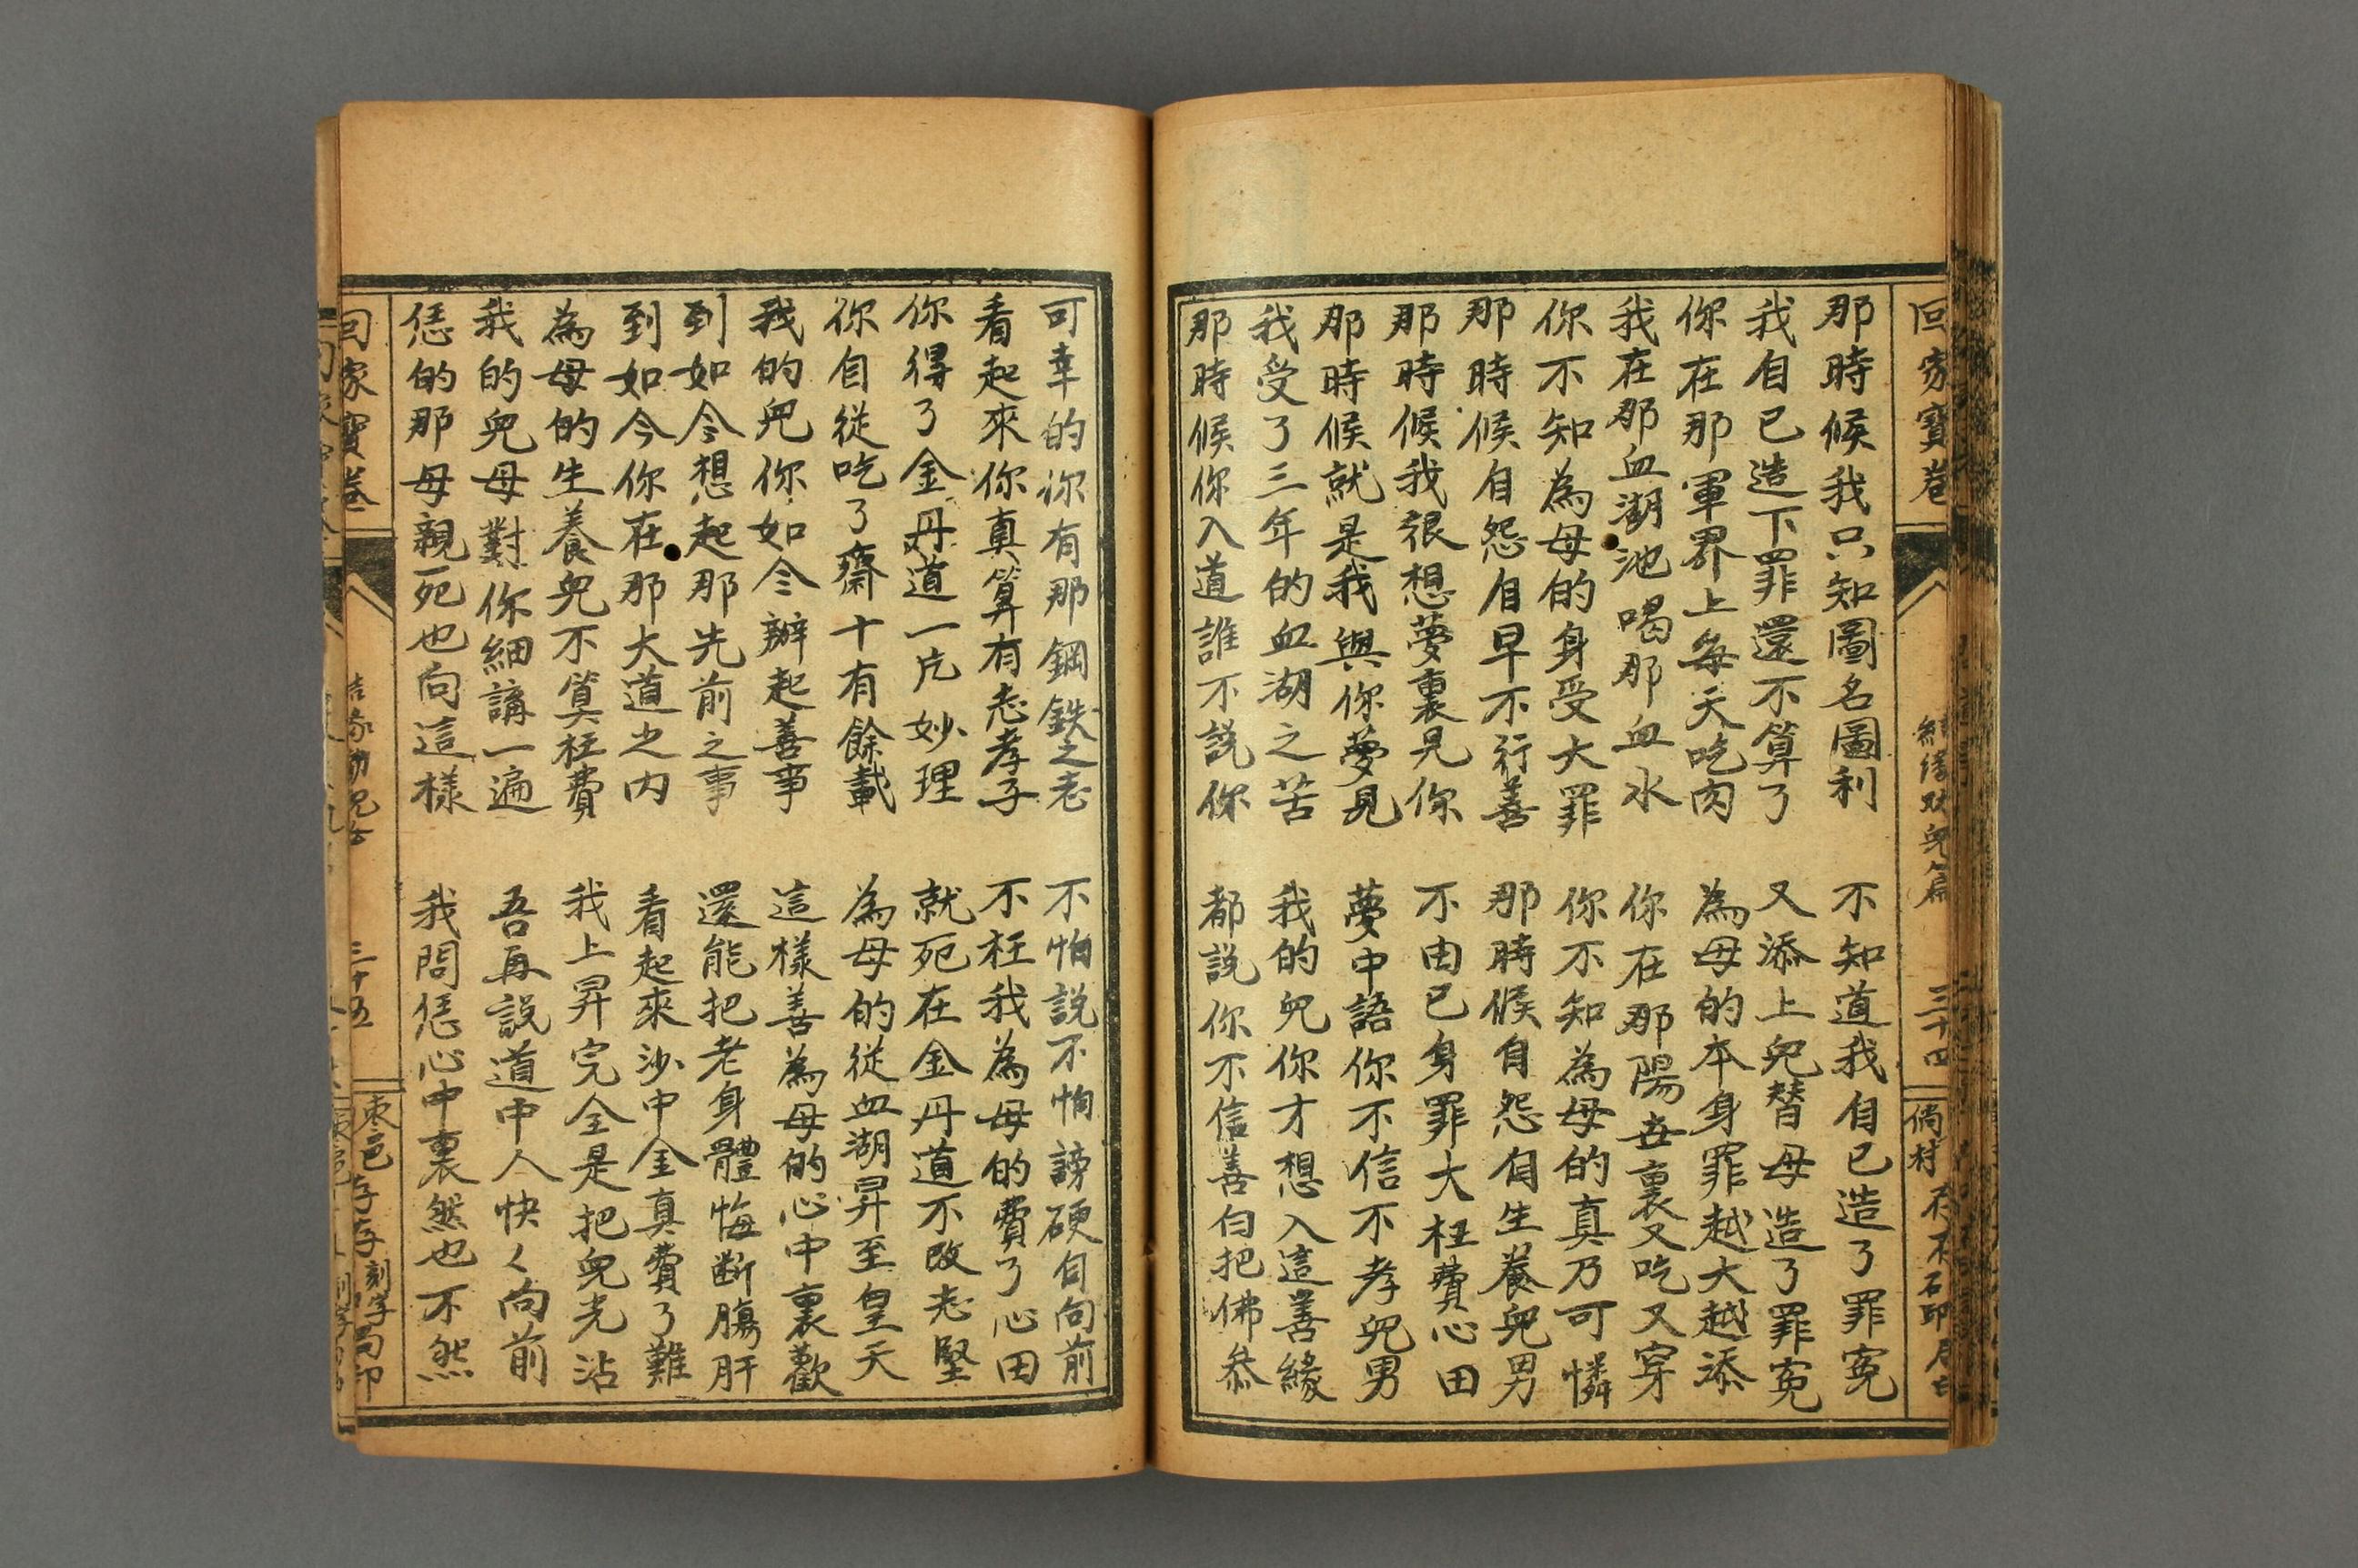 回家寶卷
三十四
那時候我只知圖名圖利 不知道我自己造了罪冤
我自己造下罪還不算了 又添上兒替母造了罪冤
你在那軍界上每天吃肉 為母的本身罪越大越添
我在那血湖池喝那血水 你在那陽世裏又吃又穿
你不知為母的身受大罪 你不知為母的真乃可憐
那時候自怨自早不行善 那時候自怨自生養兒男
那時候我很想夢裏見你 不由己身罪大枉費心田
那時候就是我與你夢見 夢中語你不信不孝兒男
我受了三年的血湖之苦 我的兒你才想入這善緣
那時候你入道誰不説你 都説你不信善白把佛叅
可幸的你有那鋼鉄之志 不怕説不怕謗硬自向前
看起來你真算有志孝子 不枉我為母的費了心田
你得了金丹道一片妙理 就死在金丹道不改志堅
你自從吃了齋十有餘載 為母的從血湖昇至皇天
我的兒你如今辦起善事 這樣善為母的心中裏歡
到如今想起那先前之事 還能把老身體悔断腸肝
到如今你在那大道之内 看起來沙中金真費了難
為母的生養兒不算枉費 我上昇完全是把兒光沾
我的兒母對你細講一遍 吾再説道中人快々向前
恁的那母親死也向這樣 我問恁心中裏然也不然
回家寶卷
三十五
棗邑
刻字局印